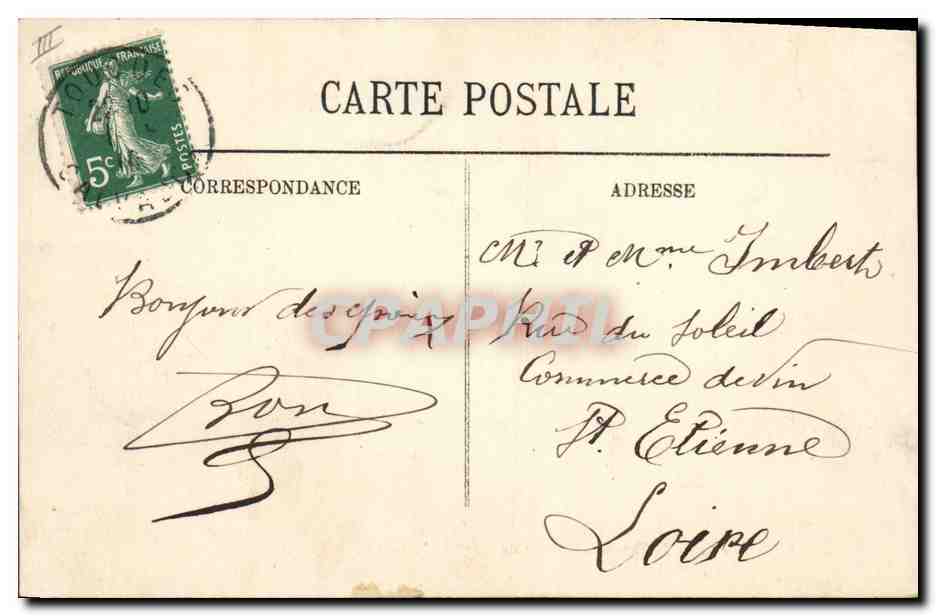 III
REPUBLIQUE FRANÇAISE
5c
POSTES
CARTE POSTALE
CORRESPONDANCE
ADRESSE
Bonjour des
Mr et Mme Imbert
Rue du Soleil
Commerce de vin
St. Etienne
Loire
CPAPHIL